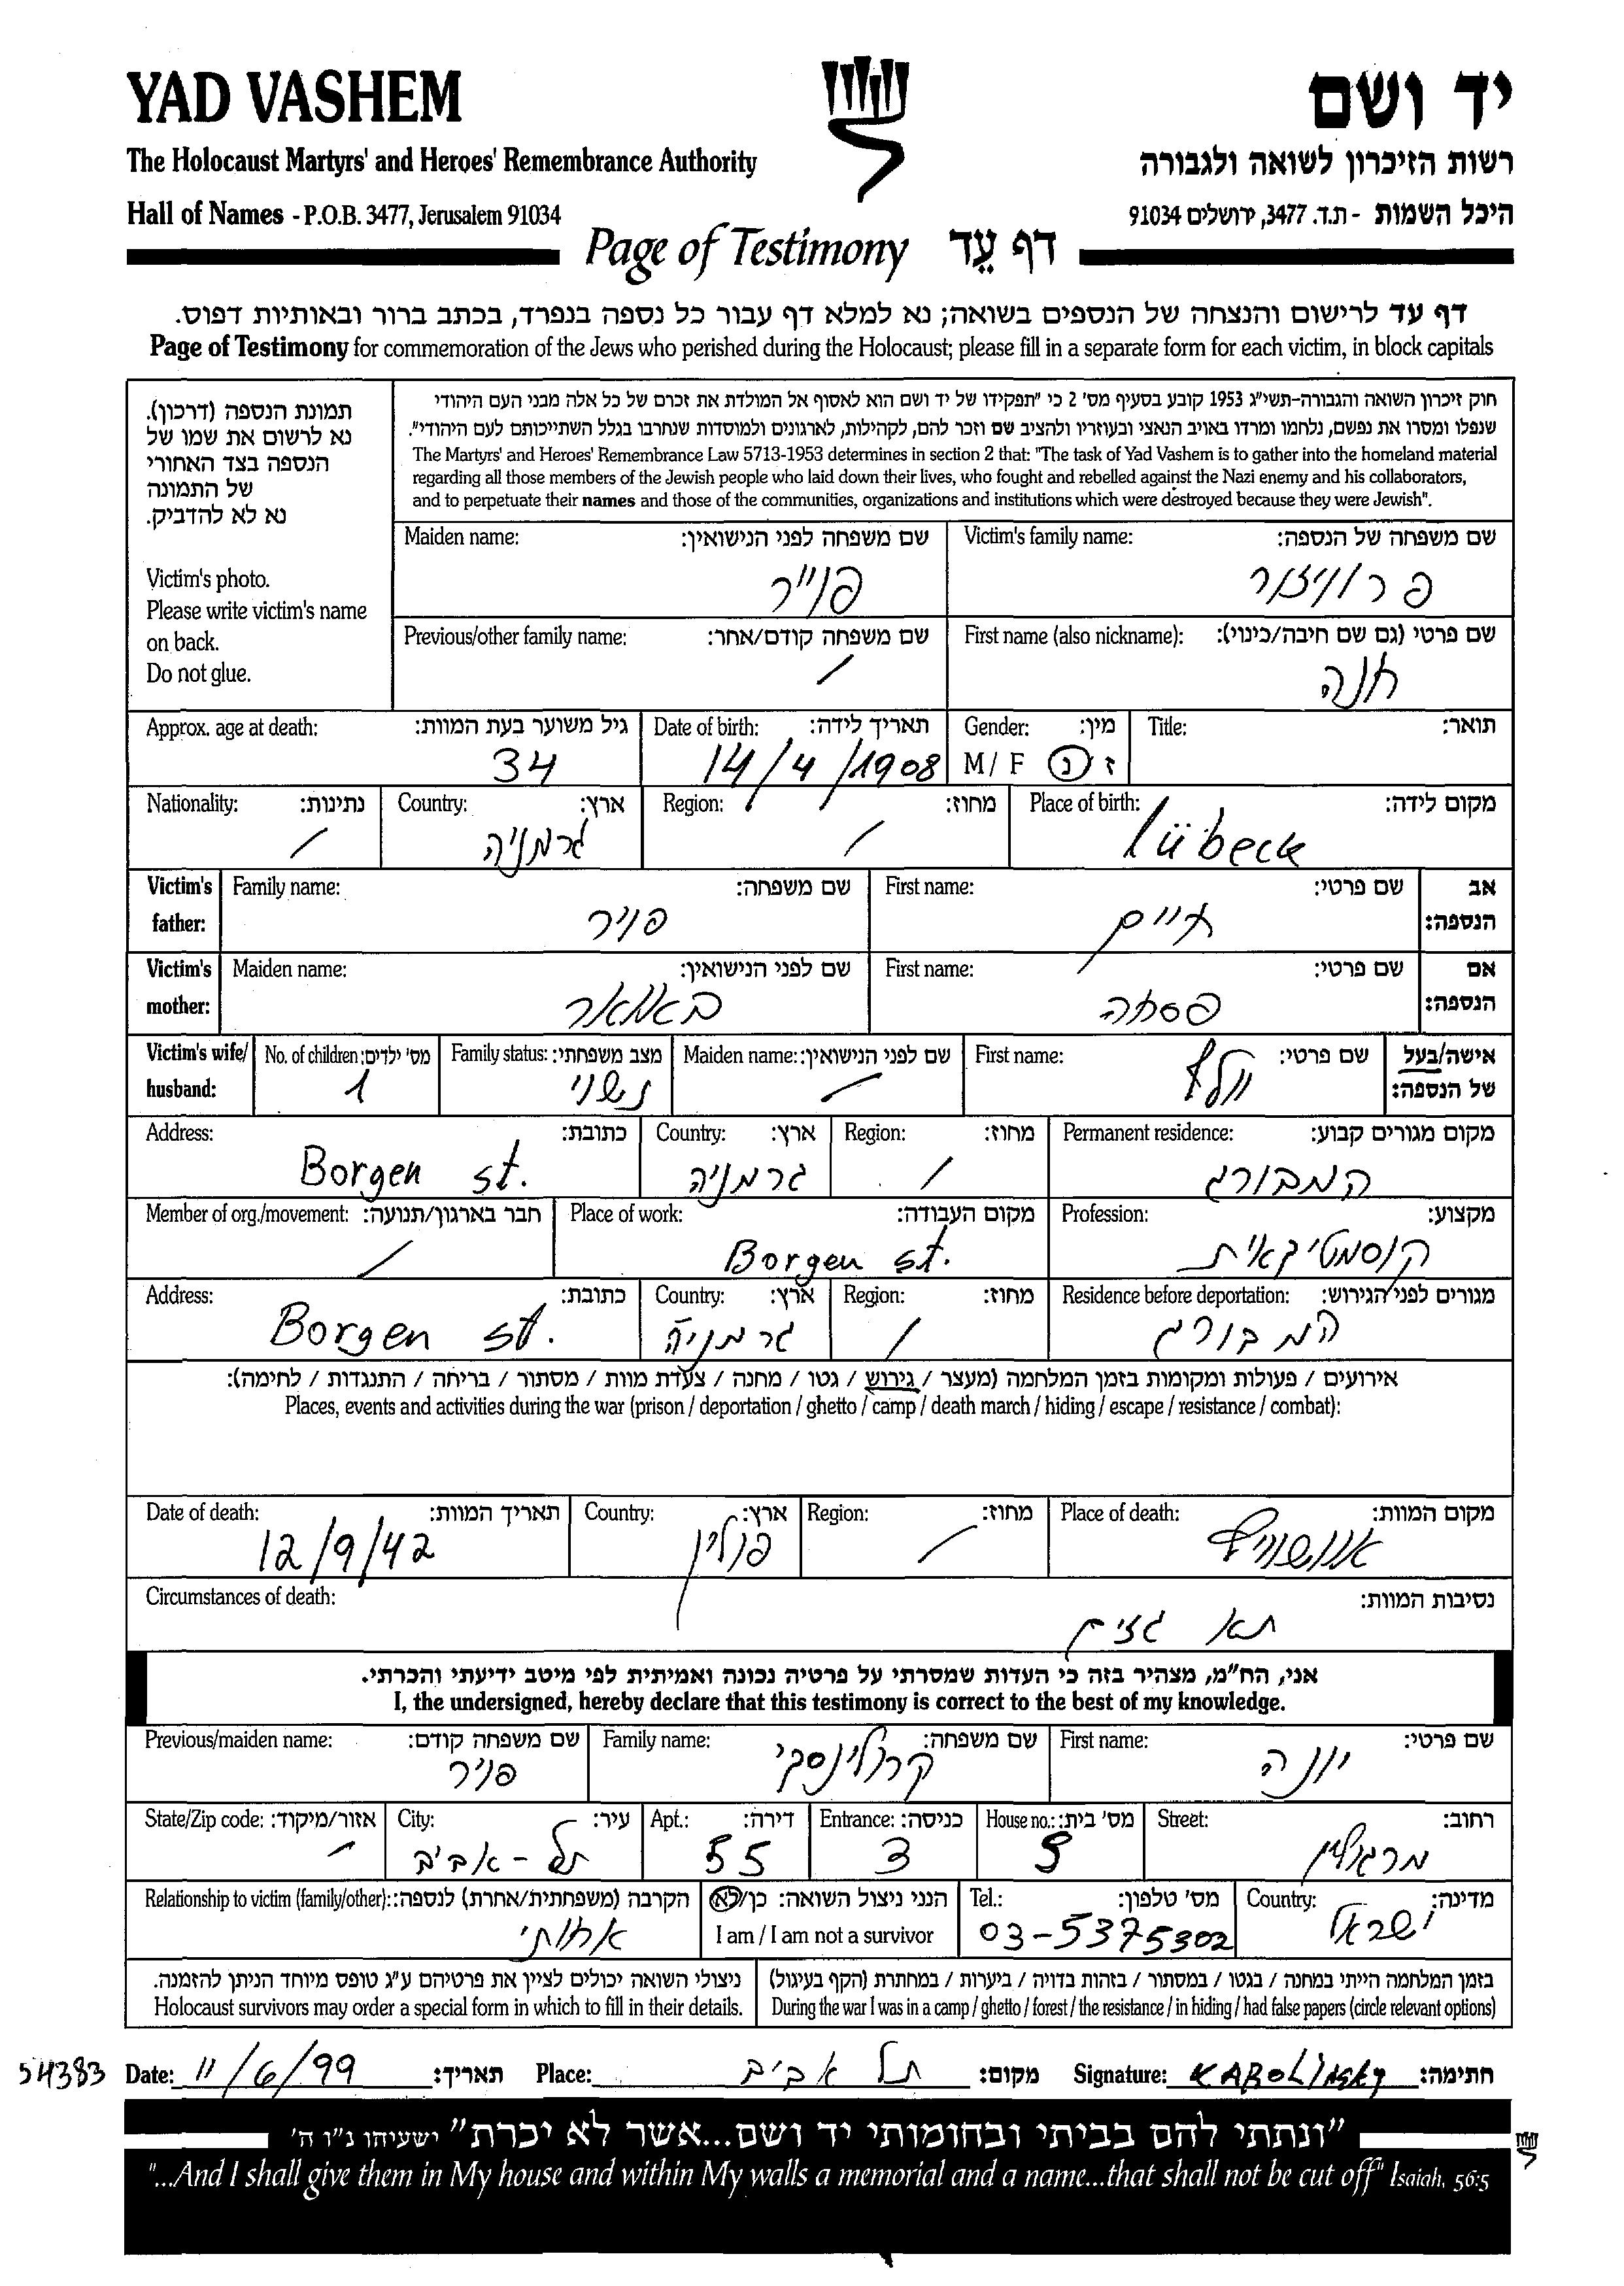 YAD VASHEM
יד ושם
The Holocaust Martyrs' and Heroes' Remembrance Authority
רשות הזיכרון לשואה ולגבורה
Hall of Names - P.O.B. 3477, Jerusalem 91034
היכל השמות - ת.ד. 3477, ירושלים 91034
Page of Testimony דף עֵד
דף עד לרישום והנצחה של הנספים בשואה; נא למלא דף עבור כל נספה בנפרד, בכתב ברור ובאותיות דפוס.
Page of Testimony for commemoration of the Jews who perished during the Holocaust; please fill in a separate form for each victim, in block capitals
תמונת הנספה (דרכון).
נא לרשום את שמו של
הנספה בצד האחורי
של התמונה
נא לא להדביק.
Victim's photo.
Please write victim's name
on back.
Do not glue.
חוק זיכרון השואה והגבורה-תשי"ג 1953 קובע בסעיף מס' 2 כי "תפקידו של יד ושם הוא לאסוף אל המולדת את זכרם של כל אלה מבני העם היהודי
שנפלו ומסרו את נפשם, נלחמו ומרדו באויב הנאצי ובעוזריו ולהציב שם וזכר להם, לקהילות, לארגונים ולמוסדות שנחרבו בגלל השתייכותם לעם היהודי".
The Martyrs' and Heroes' Remembrance Law 5713-1953 determines in section 2 that: "The task of Yad Vashem is to gather into the homeland material
regarding all those members of the Jewish people who laid down their lives, who fought and rebelled against the Nazi enemy and his collaborators,
and to perpetuate their names and those of the communities, organizations and institutions which were destroyed because they were Jewish".
Victim's family name: שם משפחה של הנספה:
Maiden name: שם משפחה לפני הנישואין:
פוייר
First name (also nickname): שם פרטי (גם שם חיבה/כינוי):
חנה
Previous/other family name: שם משפחה קודם/אחר:
/
Title: תואר:
Gender: מין:
M / F ז / נ
Date of birth: תאריך לידה:
14/4/1908
Approx. age at death: גיל משוער בעת המוות:
34
Place of birth: מקום לידה:
lübeck
Region: מחוז:
/
Country: ארץ:
גרמניה
Nationality: נתינות:
/
Victim's father: אב הנספה:
First name: שם פרטי:
חיים
Family name: שם משפחה:
פויר
Victim's mother: אם הנספה:
First name: שם פרטי:
פסחה
Maiden name: שם לפני הנישואין:
Victim's wife/ husband: אישה/בעל של הנספה:
First name: שם פרטי:
וולף
Maiden name: שם לפני הנישואין:
/
Family status: מצב משפחתי:
נשוי
No. of children: מס' ילדים:
1
Permanent residence: מקום מגורים קבוע:
המבורג
Region: מחוז:
/
Country: ארץ:
גרמניה
Address: כתובת:
Borgen st.
Profession: מקצוע:
קוסמטיקאית
Place of work: מקום העבודה:
Borgen st.
Member of org./movement: חבר בארגון/תנועה:
/
Residence before deportation: מגורים לפני הגירוש:
המבורג
Region: מחוז:
/
Country: ארץ:
גרמניה
Address: כתובת:
Borgen st.
אירועים / פעולות ומקומות בזמן המלחמה (מעצר / גירוש / גטו / מחנה / צעדת מוות / מסתור / בריחה / התנגדות / לחימה):
Places, events and activities during the war (prison / deportation / ghetto / camp / death march / hiding / escape / resistance / combat):
Place of death: מקום המוות:
אושוויץ
Region: מחוז:
/
Country: ארץ:
פולין
Date of death: תאריך המוות:
12/9/42
Circumstances of death: נסיבות המוות:
תא גזים
אני, הח"מ, מצהיר בזה כי העדות שמסרתי על פרטיה נכונה ואמיתית לפי מיטב ידיעתי והכרתי.
I, the undersigned, hereby declare that this testimony is correct to the best of my knowledge.
First name: שם פרטי:
יונה
Family name: שם משפחה:
קרולינסקי
Previous/maiden name: שם משפחה קודם:
פויר
Street: רחוב:
מרגולין
House no.: מס' בית:
Entrance: כניסה:
3
Apt.: דירה:
55
City: עיר:
תל-אביב
State/Zip code: אזור/מיקוד:
/
Country: מדינה:
ישראל
Tel.: מס' טלפון:
03-5375302
הנני ניצול השואה: כן/לא
I am / I am not a survivor
Relationship to victim (family/other): הקרבה (משפחתית/אחרת) לנספה:
אחותי
בזמן המלחמה הייתי במחנה / בגטו / במסתור / בזהות בדויה / ביערות / במחתרת (הקף בעיגול)
During the war I was in a camp / ghetto / forest / the resistance / in hiding / had false papers (circle relevant options)
ניצולי השואה יכולים לציין את פרטיהם ע"ג טופס מיוחד הניתן להזמנה.
Holocaust survivors may order a special form in which to fill in their details.
54383 Date: 11/6/99 תאריך: Place: תל אביב מקום: Signature: KAROLINSKY חתימה:
"ונתתי להם בביתי ובחומותי יד ושם...אשר לא יכרת" ישעיהו נ"ו ה'
"...And I shall give them in My house and within My walls a memorial and a name...that shall not be cut off" Isaiah, 56:5